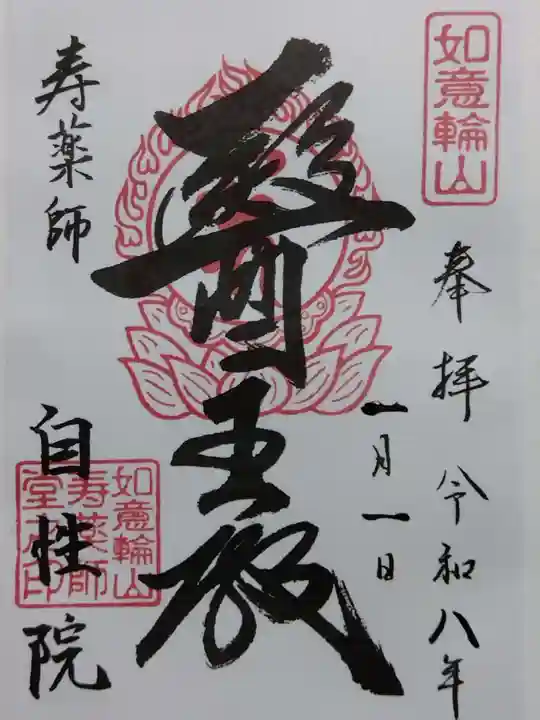 如意輪山
奉拝 令和八年
一月一日
醫王殿
寿薬師
自性院
如意輪山
寿薬師
堂之印